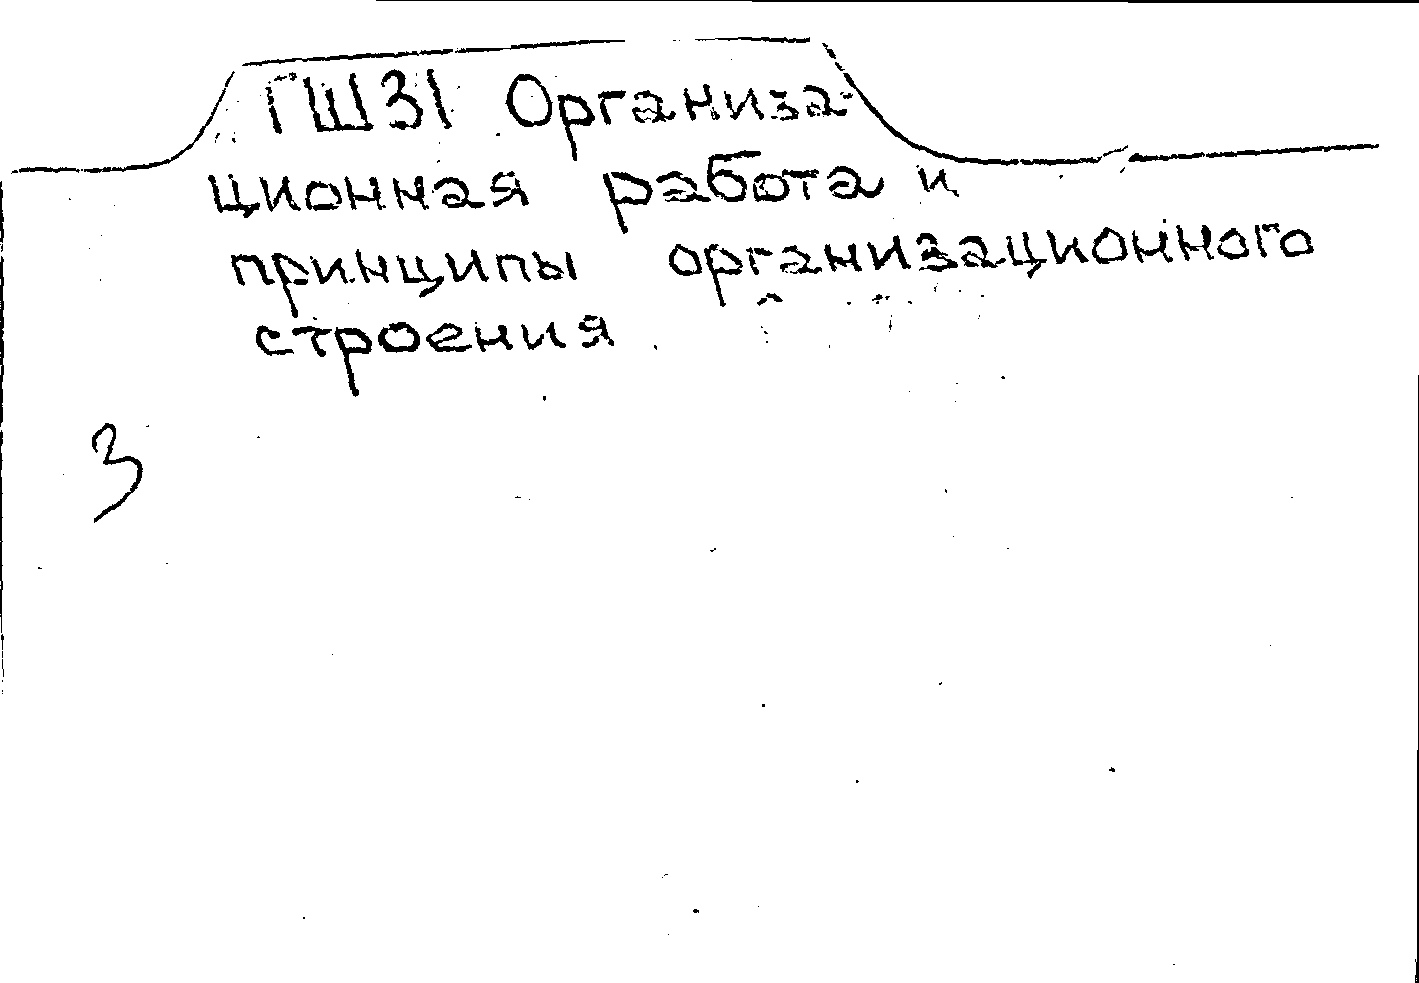 ГШ31 Организа-
ционная работа и
принципы организационного
строения
3